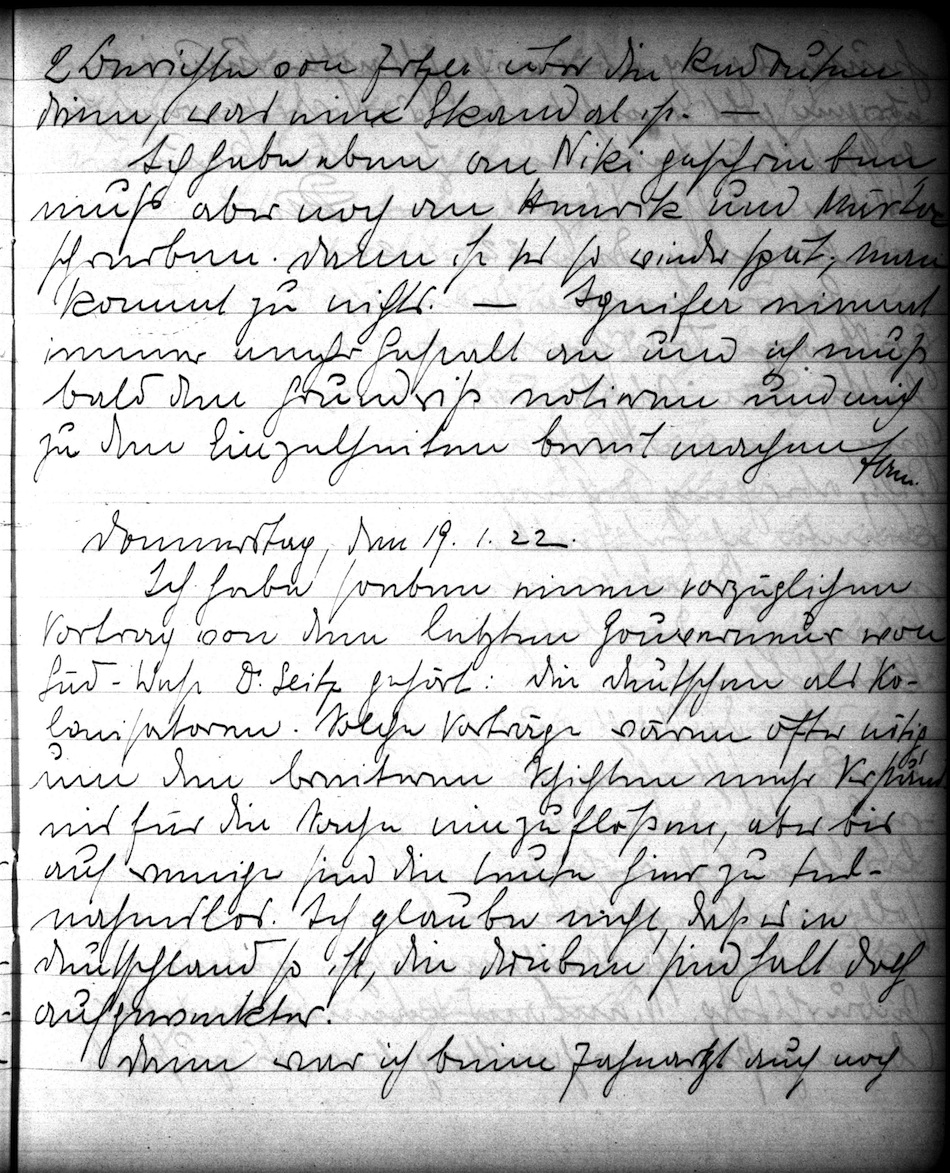 2 Berichte von über die
drinn, was eine Skandal ist. —
Ich habe eben an Niki geschrieben,
muss aber noch an Henrik und
schreiben. Dann ist es so wieder spät, man
kommt zu nichts. — nimmt
immer mehr Gestalt an und ich muß
bald den Grundriß notieren und mich
zu den Einzelheiten bereit machen

Donnerstag, den 19. 1. 22.
Ich habe soeben einen vorzüglichen
Vortrag von dem letzten Gouverneur von
Süd-West Dr. Seitz gehört: die Deutschen als Ko-
lonisatoren. Solche Vorträge wären öfter nötig
um den breiteren Schichten mehr Verständ
nis für die Sache einzuflößen, aber bis
auf wenige sind die Leute hier zu teil-
nahmslos. Ich glaube nicht, daß es in
Deutschland so ist, die drüben sind halt doch
aufgeweckter.
Dann war ich beim Zahnarzt auch noch